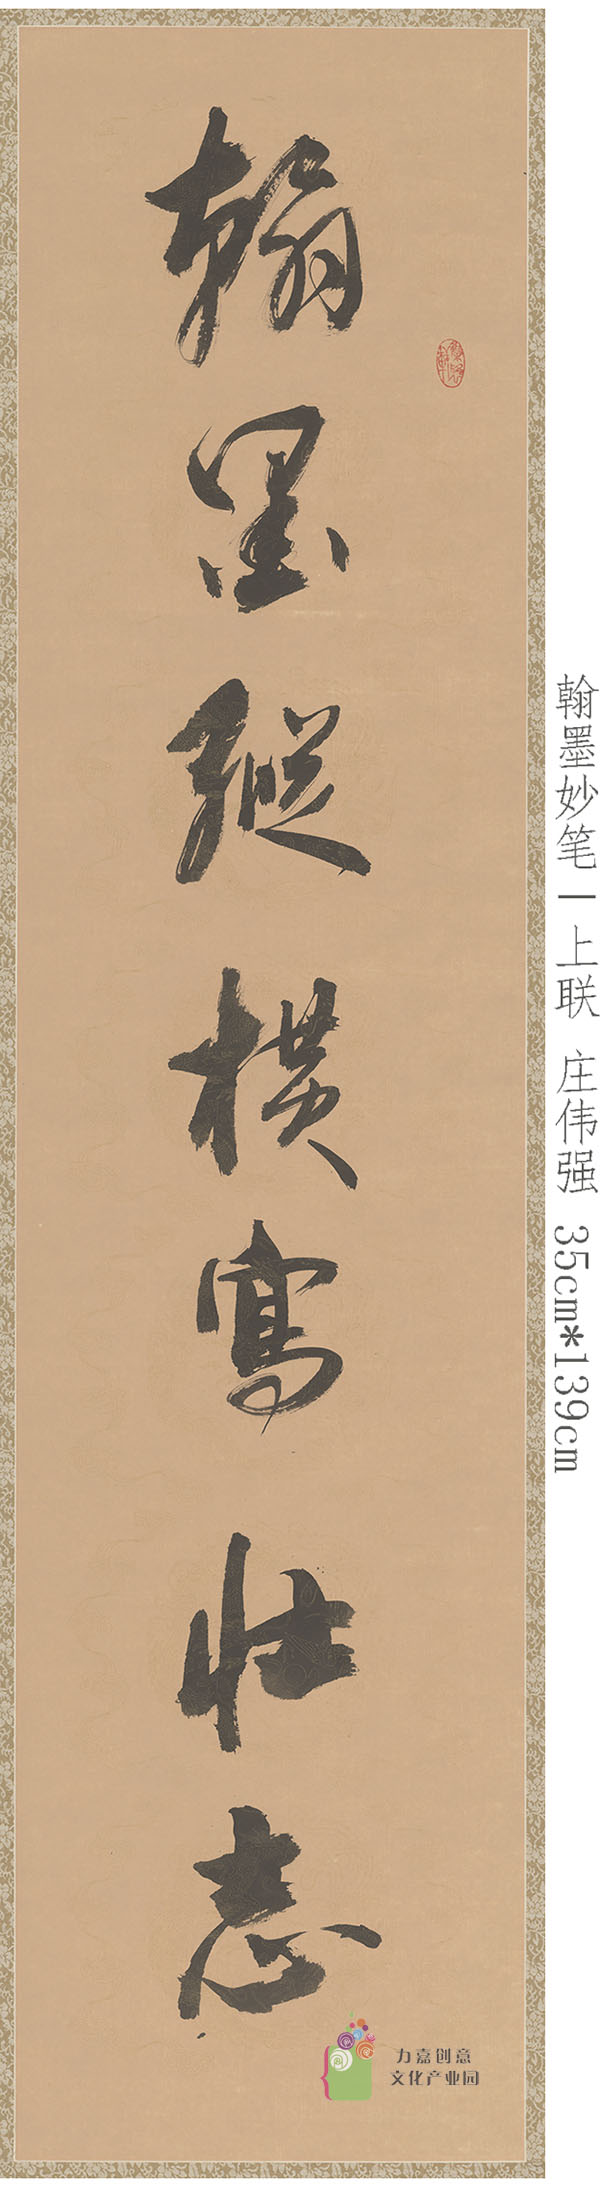 翰墨縱横寫壮志
翰墨妙笔—上联 庄伟强 35cm*139cm
力嘉创意
文化产业园